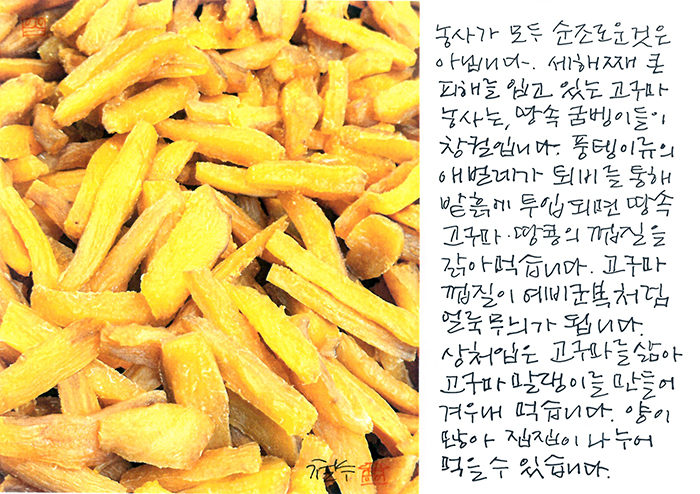 농사가 모두 순조로운것은
아닙니다. 세해째 큰
피해를 입고 있는 고구마
농사는, 땅속 굼벵이들이
창궐입니다. 풍뎅이류의
애벌레가 퇴비를 통해
밭흙에 투입되면 땅속
고구마·땅콩의 껍질을
갉아먹습니다. 고구마
껍질이 예비군복처럼
얼룩무늬가 됩니다.
상처입은 고구마를 삶아
고구마 말랭이를 만들어
겨우내 먹습니다. 양이
많아 집집이 나누어
먹을수 있습니다.